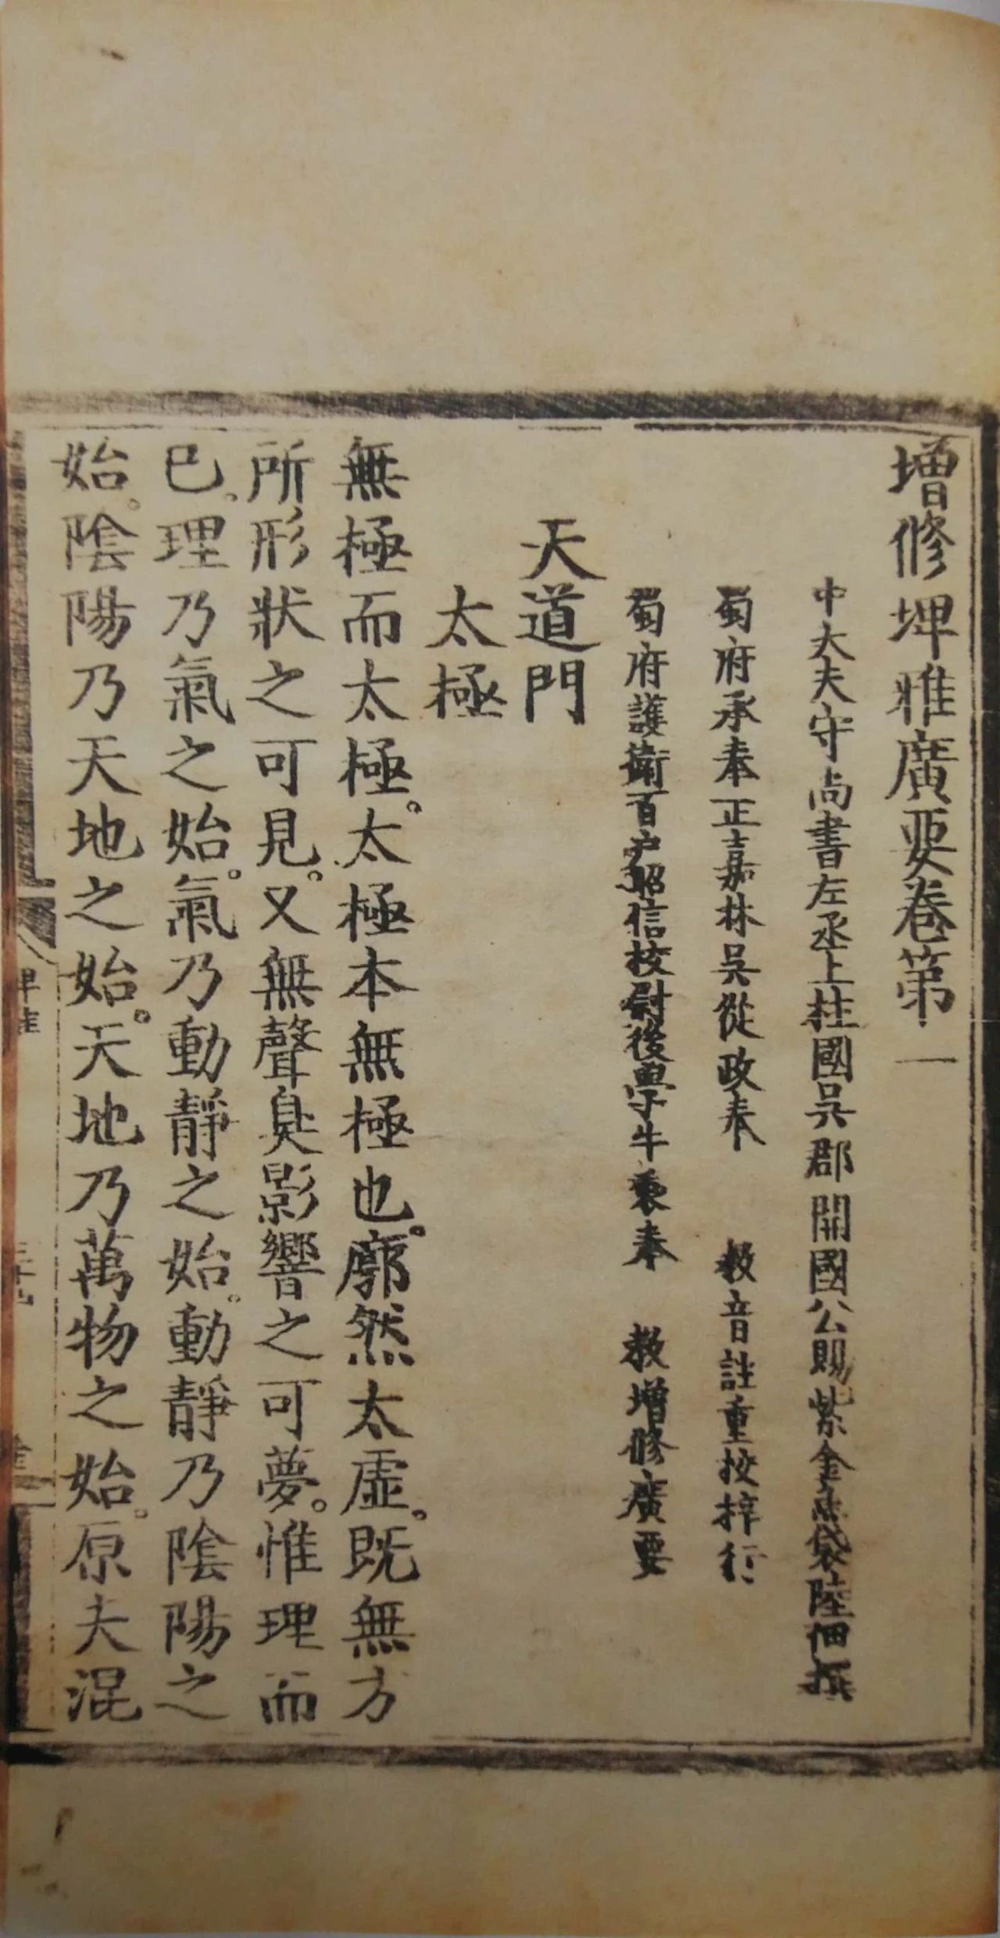 增修埤雅廣要卷第一
中大夫守尚書左丞上柱國吳郡開國公賜紫金魚袋陸佃撰
蜀府承奉正嘉林吳從政奉 教音註重校梓行
蜀府護衛百户昭信校尉後學牛衷奉 教增修廣要
天道門
太極
無極而太極。太極本無極也。廓然太虛。既無方
所形狀之可見。又無聲臭影響之可夢。惟理而
已。理乃氣之始。氣乃動靜之始。動靜乃陰陽之
始。陰陽乃天地之始。天地乃萬物之始。原夫混